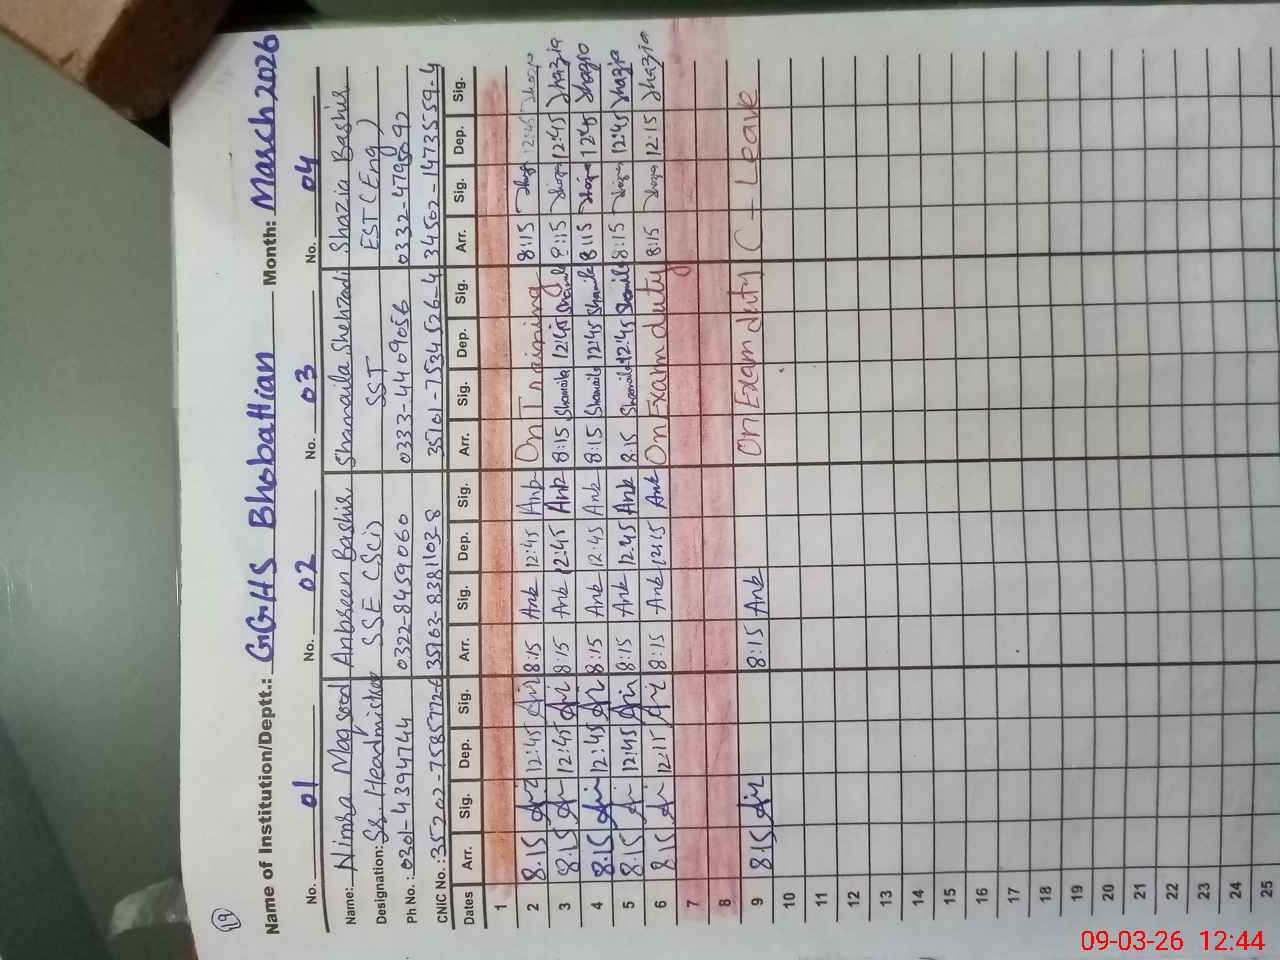 19
Name of Institution/Deptt.: GGHS Bhobattian Month: March 2026
No. 01 No. 02 No. 03 No. 04
Name: Nimra Maqsood Anbreen Bashir Shamaila Shehzadi Shazia Bashir
Designation: Sr. Headmistress SSE (Sci) SST EST (Eng)
Ph No.: 0301-4394744 0322-8459060 0333-4409056 0332-4795092
CNIC No.: 35202-7585772-6 35103-8381103-8 35101-7534526-4 34502-1473559-4
Dates Arr. Sig. Dep. Sig. Arr. Sig. Dep. Sig. Arr. Sig. Dep. Sig. Arr. Sig. Dep. Sig.
1
2 8:15 12:45 8:15 Anb 12:45 Anb On Training 8:15 Shazia 12:45 Shazia
3 8:15 12:45 8:15 Anb 12:45 Anb 8:15 Shamaila 12:45 Shamaila 8:15 Shazia 12:45 Shazia
4 8:15 12:45 8:15 Anb 12:45 Anb 8:15 Shamaila 12:45 Shamaila 8:15 Shazia 12:45 Shazia
5 8:15 12:45 8:15 Anb 12:45 Anb 8:15 Shamaila 12:45 Shamaila 8:15 Shazia 12:45 Shazia
6 8:15 12:15 8:15 Anb 12:15 Anb On Exam duty 8:15 Shazia 12:15 Shazia
7
8
9 8:15 8:15 Anb On Exam duty C-Leave
10
11
12
13
14
15
16
17
18
19
20
21
22
23
24
25
09-03-26 12:44